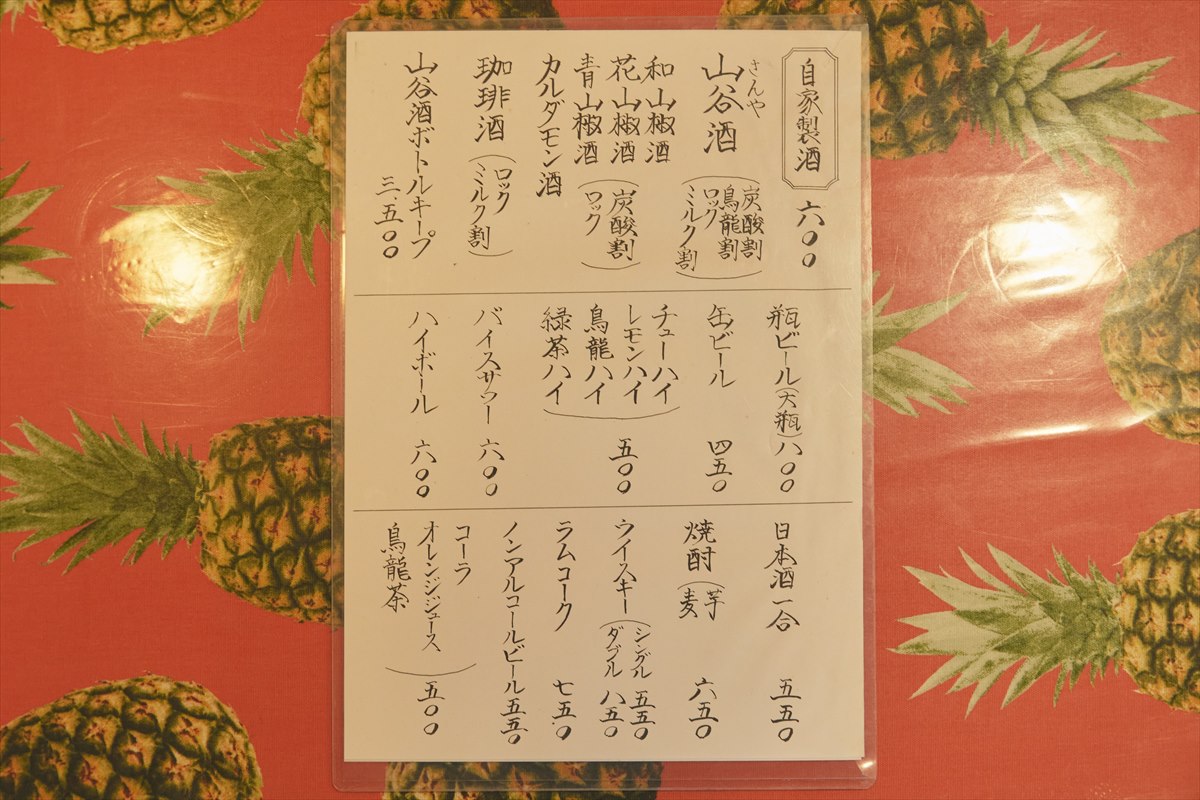 自家製酒 六〇〇
さんや
山谷酒(炭酸割
烏龍割
ロック
ミルク割)
和山椒酒
花山椒酒
青山椒酒
(炭酸割
ロック)
カルダモン酒
珈琲酒(ロック
ミルク割)
山谷酒ボトルキープ
三、五〇〇
瓶ビール(大瓶)八〇〇
缶ビール 四五〇
チューハイ
レモンハイ
烏龍ハイ
緑茶ハイ
五〇〇
バイスサワー 六〇〇
ハイボール 六〇〇
日本酒一合 五五〇
焼酎(芋
麦) 六五〇
ウイスキー(シングル 五五〇
ダブル 八五〇
ラムコーク 七五〇
ノンアルコールビール 五五〇
コーラ
オレンジジュース
烏龍茶
五〇〇